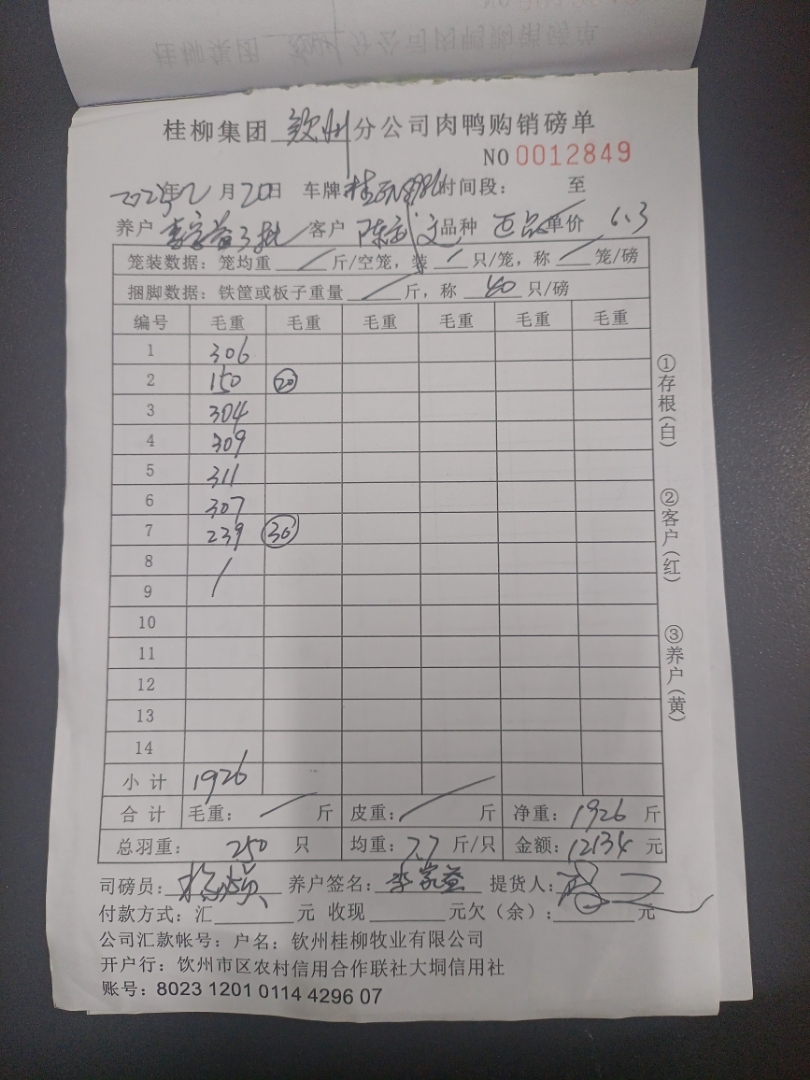 桂柳集团 钦州 分公司肉鸭购销磅单
NO 0012849
年 2 月 20 日 车牌 时间段： 至
养户 李家益3批 客户 陈 文 品种 正品 单价 6.3
笼装数据：笼均重 / 斤/空笼，装 / 只/笼，称 / 笼/磅
捆脚数据：铁筐或板子重量 / 斤，称 40 只/磅
编号 毛重 毛重 毛重 毛重 毛重 毛重
1 306
2 150 20
3 304
4 309
5 311
6 307
7 239 30
8 /
9
10
11
12
13
14
小计 1926
合计 毛重： / 斤 皮重： / 斤 净重：1926 斤
总羽重： 250 只 均重：7.7 斤/只 金额：12134 元
司磅员： 养户签名：李家益 提货人：
付款方式：汇 元 收现 元欠（余）： 元
公司汇款帐号：户名：钦州桂柳牧业有限公司
开户行：钦州市区农村信用合作联社大垌信用社
账号：8023 1201 0114 4296 07
①存根（白） ②客户（红） ③养户（黄）